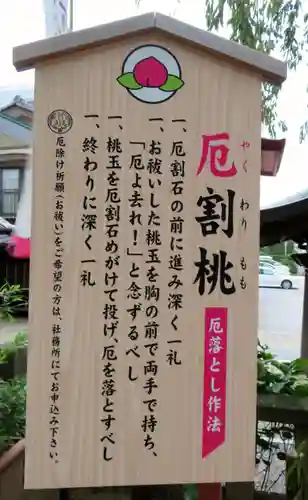 厄割桃
やくわりもも
厄落とし作法
一、厄割石の前に進み深く一礼
一、お祓いした桃玉を胸の前で両手で持ち、
「厄よ去れ！」と念ずるべし
一、桃玉を厄割石めがけて投げ、厄を落とすべし
一、終わりに深く一礼
厄除け祈願（お祓い）をご希望の方は、社務所にてお申込み下さい。